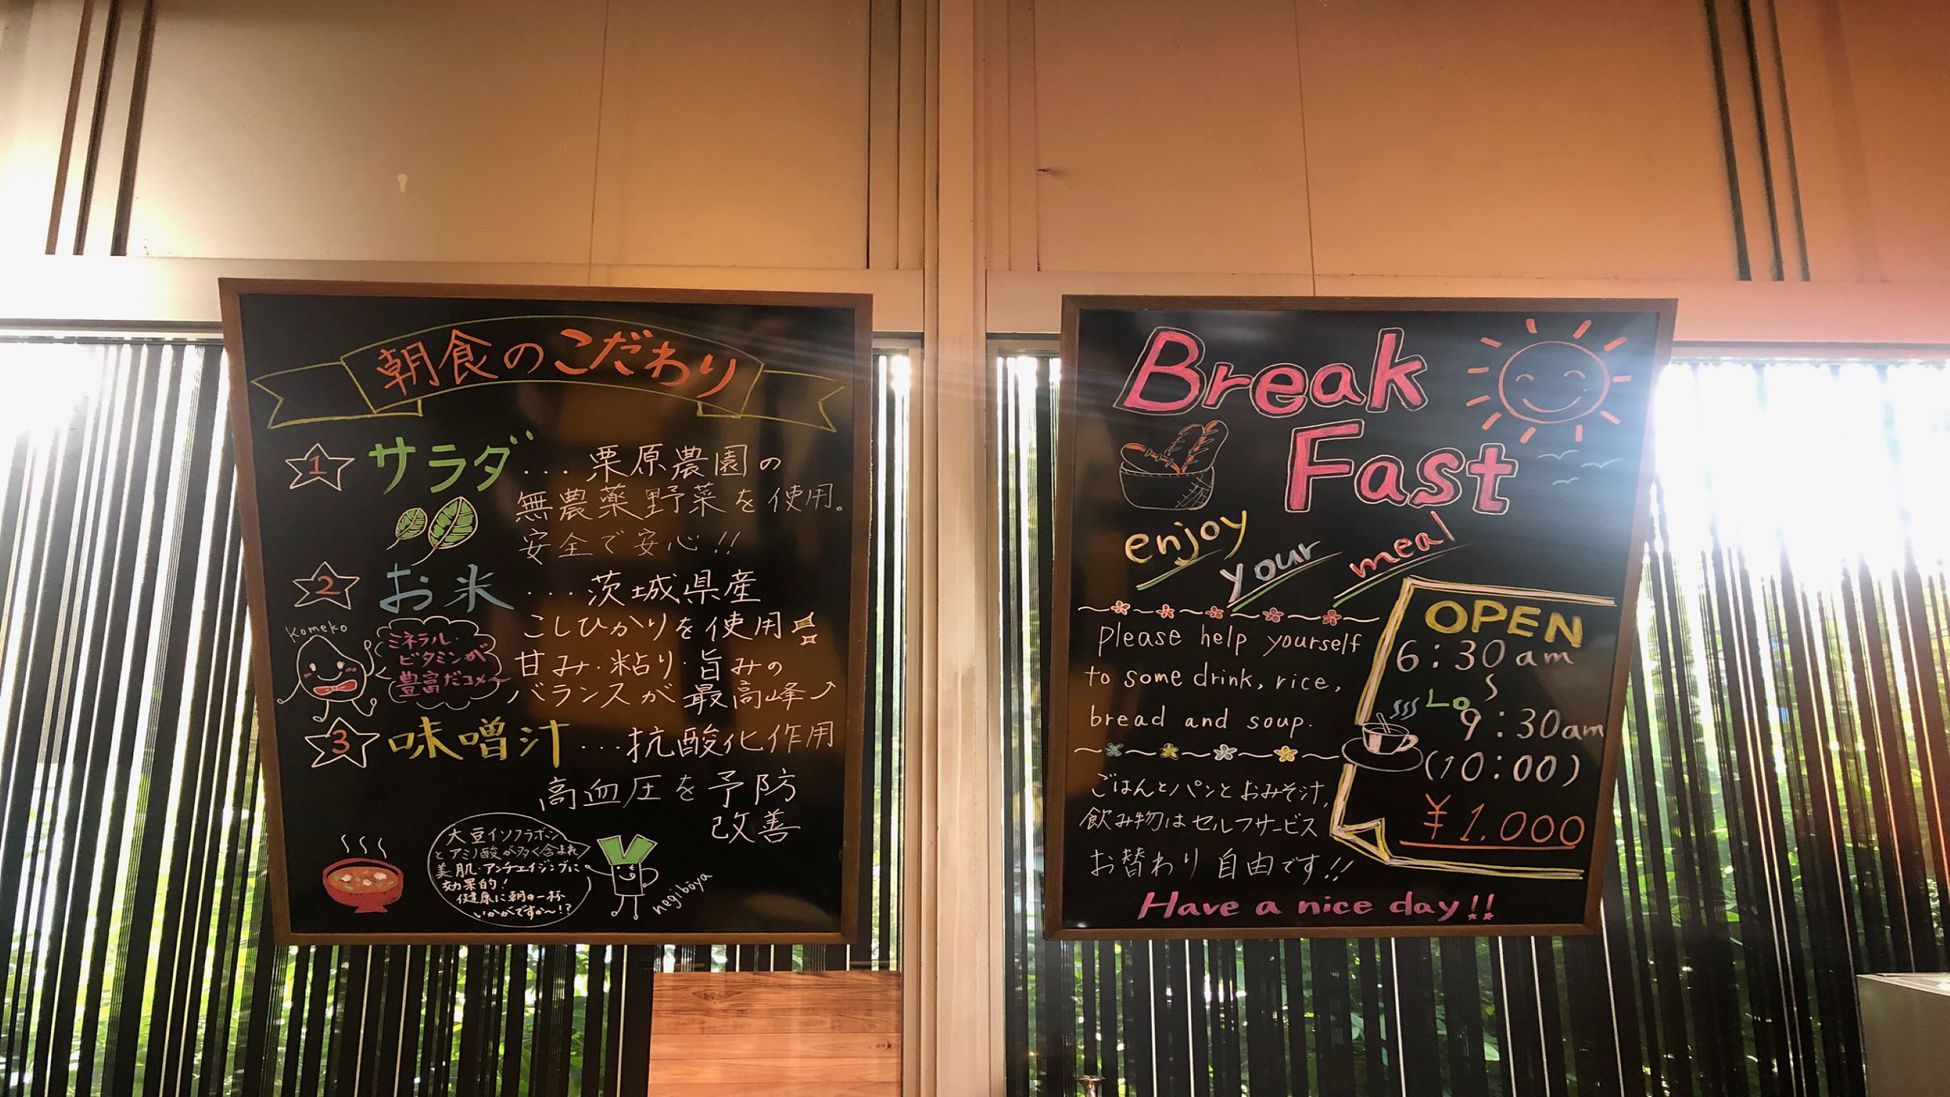 朝食のこだわり
1 サラダ...栗原農園の
無農薬野菜を使用。
安全で安心!!
2 お米...茨城県産
こしひかりを使用
甘み・粘り・旨みの
バランスが最高峰
komeko
ミネラル・
ビタミンが
豊富だコメ〜
3 味噌汁...抗酸化作用
高血圧を予防
改善
大豆イソフラボン
とアミノ酸が多く含まれ
美肌・アンチエイジングに
効果的!
健康に朝の一杯
いかがですか〜!?
negiboya
Break
Fast
enjoy your meal
please help yourself
to some drink, rice,
bread and soup.
ごはんとパンとおみそ汁,
飲み物はセルフサービス
お替わり自由です!!
OPEN
6:30am
〜
Lo 9:30am
(10:00)
¥1.000
Have a nice day!!